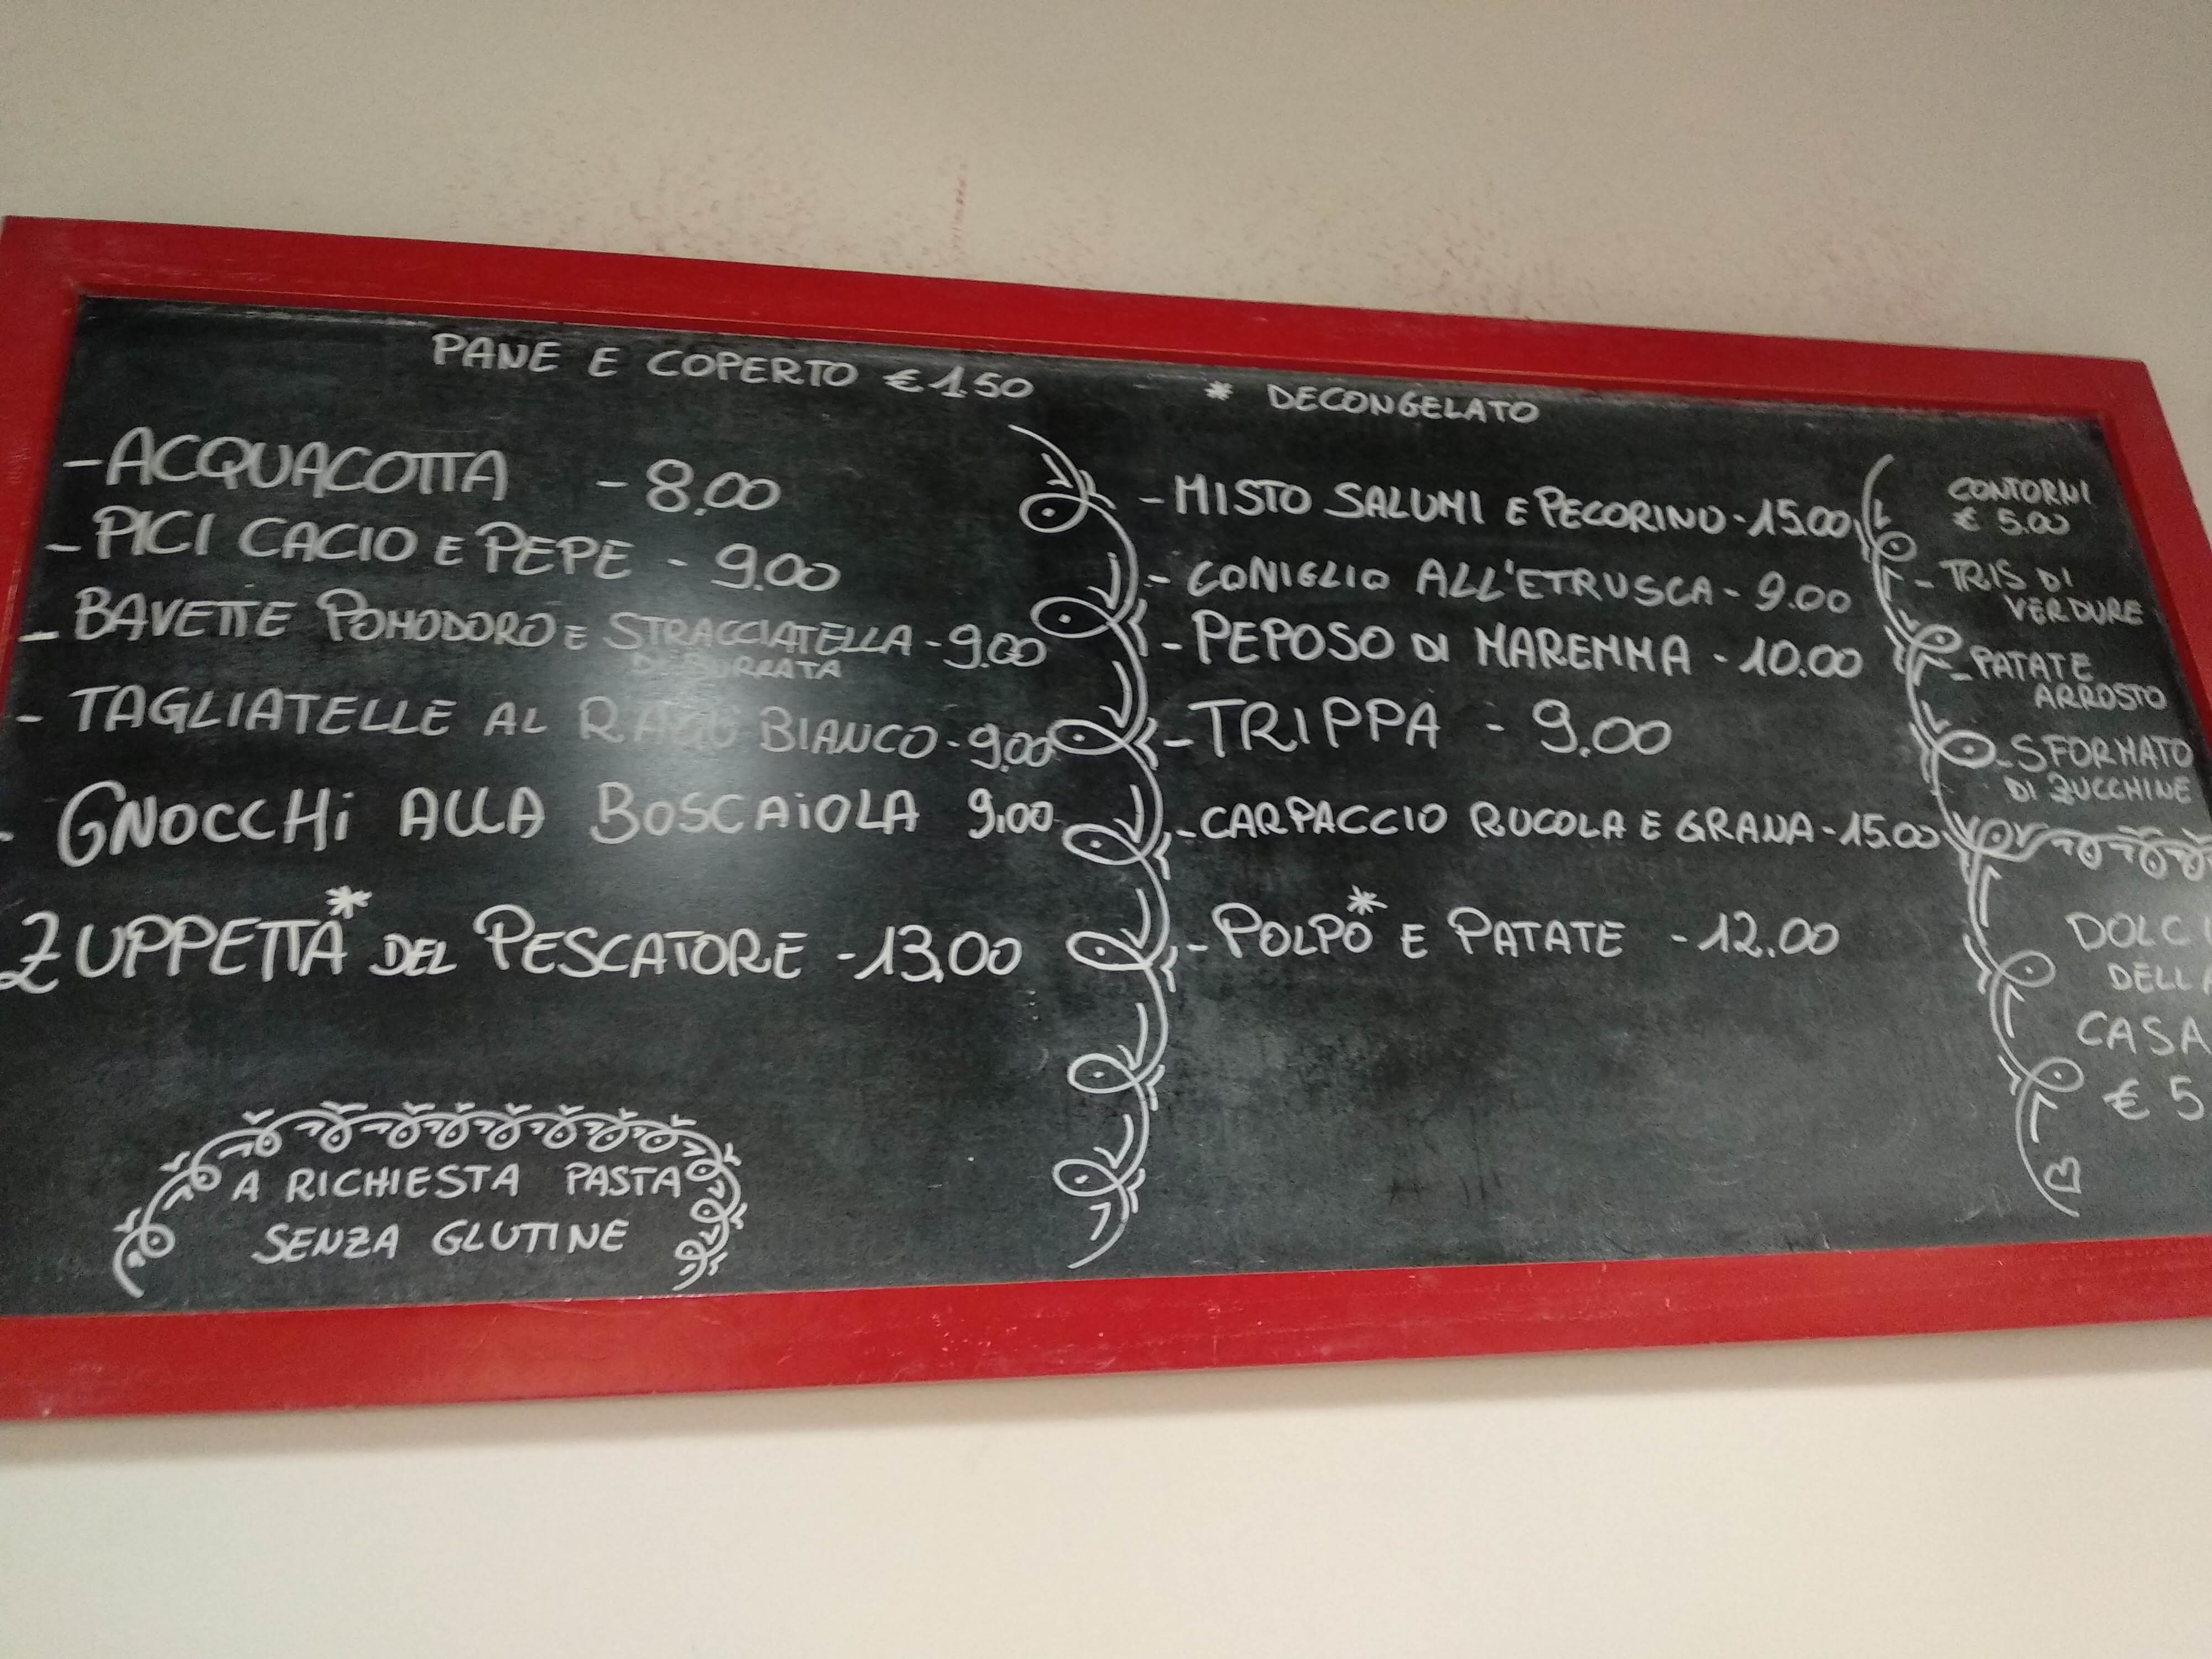 PANE E COPERTO € 1.50
* DECONGELATO
- ACQUACOTTA - 8.00
- PICI CACIO E PEPE - 9.00
- BAVETTE POMODORO E STRACCIATELLA - 9.00
DI BURRATA
- TAGLIATELLE AL RAGÙ BIANCO - 9.00
- GNOCCHi ALLA BOSCAiOLA 9.00
ZUPPETTA* DEL PESCATORE - 13.00
A RICHIESTA PASTA
SENZA GLUTINE
- MISTO SALUMI E PECORINO - 15.00
- CONIGLIO ALL'ETRUSCA - 9.00
- PEPOSO DI MAREMMA - 10.00
- TRIPPA - 9.00
- CARPACCIO RUCOLA E GRANA - 15.00
- POLPO* E PATATE - 12.00
CONTORNI
€ 5.00
- TRIS DI
VERDURE
- PATATE
ARROSTO
- SFORMATO
DI ZUCCHINE
DOLCI
DELLA
CASA
€ 5